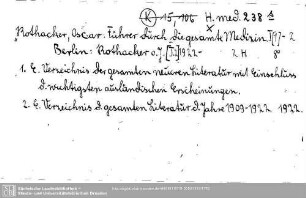 K 15,106 H. med. 238
Rothacher, Oscar. Führer durch die gesamte Medizin
Berlin: Rothacher o.J. 1922- 2 H 8°
1. E. Verzeichnis der gesamten neueren Literatur mit Einschluss
d. wichtigsten ausländischen Erscheinungen.
2. E. Verzeichnis d. gesamten Literatur d. Jahre 1909-1922 1922.
Sächsische Landesbibliothek -
Staats- und Universitätsbibliothek Dresden